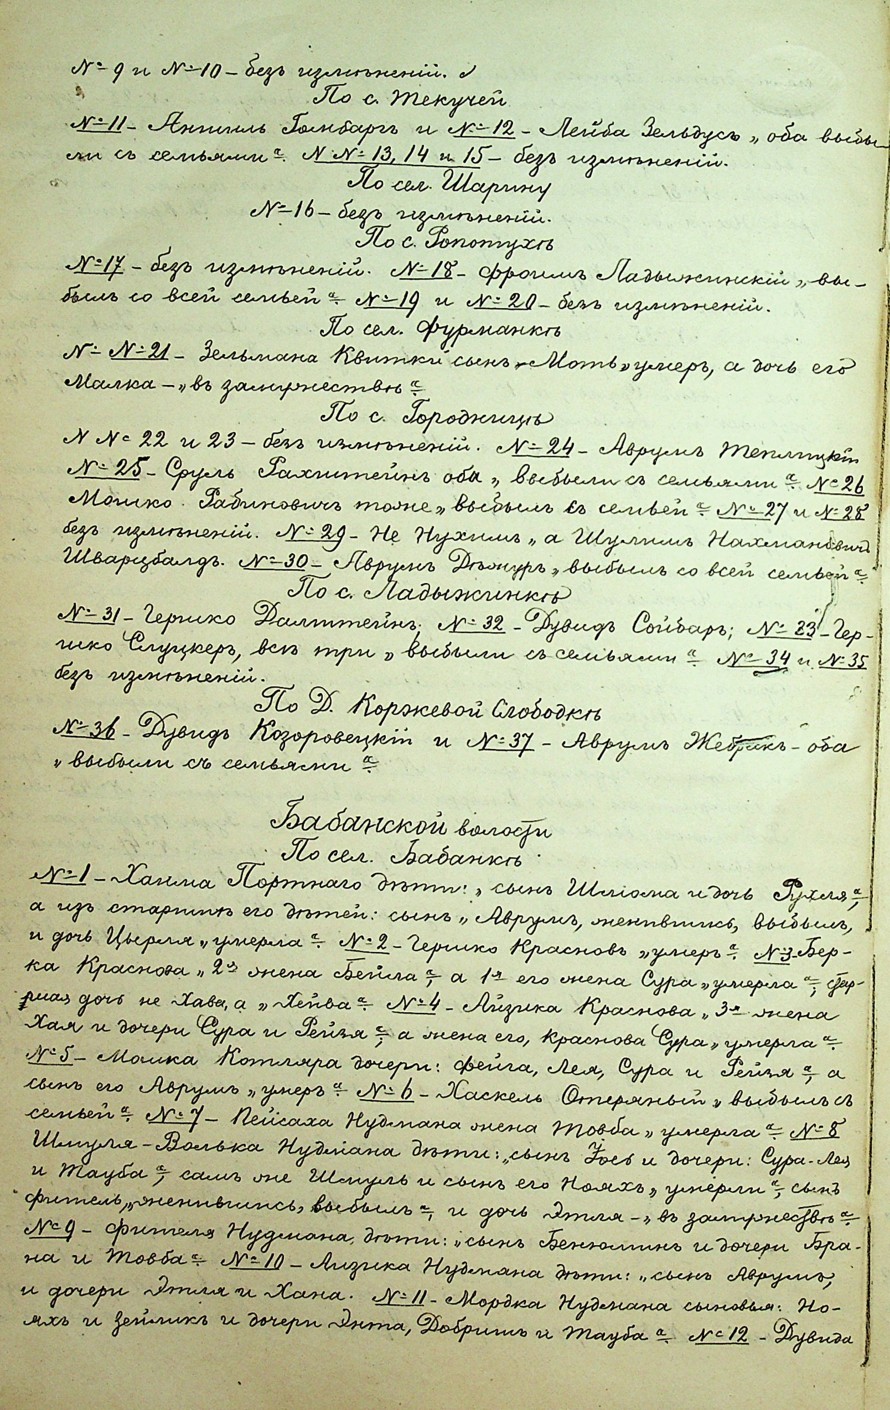 № 9 и № 10 – безъ измѣненій.
По с. Текучей
№ 11 – Аншиль Гомбаргъ и № 12 – Лейба Зельдусъ „оба выбы-
ли съ семьями“. № № 13, 14 и 15 – безъ измѣненій.
По сел. Шарину
№ 16 – безъ измѣненій.
По с. Ропотухѣ
№ 17 – безъ измѣненій. № 18 – Фроимъ Ладыжинскій „вы-
былъ со всей семьей“. № 19 и № 20 – безъ измѣненій.
По сел. Фурманкѣ
№ № 21 – Зельмана Квитки сынъ Мотъ „умеръ, а дочь его
Малка – „въ замужествѣ“.
По с. Городницѣ
№ № 22 и 23 – безъ измѣненій. № 24 – Аврумъ Теплицкій
№ 25 – Сруль Рахштейнъ оба „выбыли съ семьями“. № 26
Мошко Рабиновичъ тоже „выбылъ съ семьей“. № 27 и № 28
безъ измѣненій. № 29 – Не Нухимъ „а Шулимъ Нахмановичъ
Шварцбалдъ. № 30 – Аврумъ Дѣжуръ „выбылъ со всей семьей“.
По с. Ладыжинкѣ
№ 31 – Гершко Далштейнъ; № 32 – Дувидъ Сойбаръ; № 33 – Гер-
шко Слуцкеръ, всѣ три „выбыли съ семьями“. № 34 и № 35
безъ измѣненій.
По Д. Коржевой Слободкѣ
№ 36 – Дувидъ Козоровецкій и № 37 – Аврумъ Жебракъ – оба
„выбыли съ семьями“.
Бабанской волости
По сел. Бабанкѣ
№ 1 – Хаима Портнаго дѣти: „сынъ Шлиома и дочь Рухля“,
а изъ старшихъ его дѣтей: сынъ „Аврумъ, женившись, выбылъ,
и дочь Цырля „умерла“. № 2 – Гершко Красновъ „умеръ“. № 3 – Бер-
ка Краснова „2ая жена Бейла“, а 1я его жена Сура „умерла“,
дочь не Хава, а „Хейва“. № 4 – Айзика Краснова „3я жена
Хая и дочери Сура и Рейзя“, а жена его, Краснова Сура „умерла“.
№ 5 – Мошка Котляра дочери: Фейга, Лея, Сура и Рейзя“, а
сынъ его Аврумъ „умеръ“. № 6 – Хаскель Отеряный „выбылъ съ
семьей“. № 7 – Пейсаха Нудмана жена Товба „умерла“. № 8
Шмуля-Волька Нудмана дѣти: „сынъ Іосъ и дочери: Сура-Лея
и Тауба“, самъ же Шмуль и сынъ его Нояхъ „умерли“, сынъ
Фитель, „женившись, выбылъ“, и дочь Этля – „въ замужествѣ“.
№ 9 – Фителя Нудмана дѣти: „сынъ Бенюминъ и дочери Бра-
на и Товба“. № 10 – Айзика Нудмана дѣти: „сынъ Аврумъ,
и дочери Этля и Хана. № 11 – Мордка Нудмана сыновья: Но-
яхъ и Зейликъ и дочери Энта, Добришъ и Тауба“. № 12 – Дувида